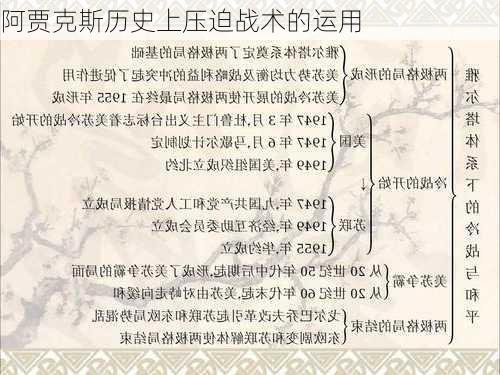 阿贾克斯历史上压迫战术的运用
雅尔塔体系下的冷战与和平
两极格局的形成
雅尔塔体系奠定了两极格局的基础
美苏势力均衡及战略利益的冲突起了促进作用
美苏冷战的展开使两极格局最终在 1955 年形成
冷战的开始
↓
美国
1947 年 3 月,杜鲁门主义出台标志着美苏冷战的开始
1947 年 6 月,马歇尔计划制定
1949 年,美国组织成立北约
苏联
1947 年,九国共产党和工人党情报局成立
1949 年,经济互助委员会成立
1955 年,华约成立
美苏争霸
从 20 世纪 50 年代中后期起,形成了美苏争霸的局面
从 20 世纪 60 年代末起,美苏由对峙走向缓和
两极格局的结束
戈尔巴乔夫改革引起苏联和东欧局势混乱
东欧剧变和苏联解体使两极格局结束